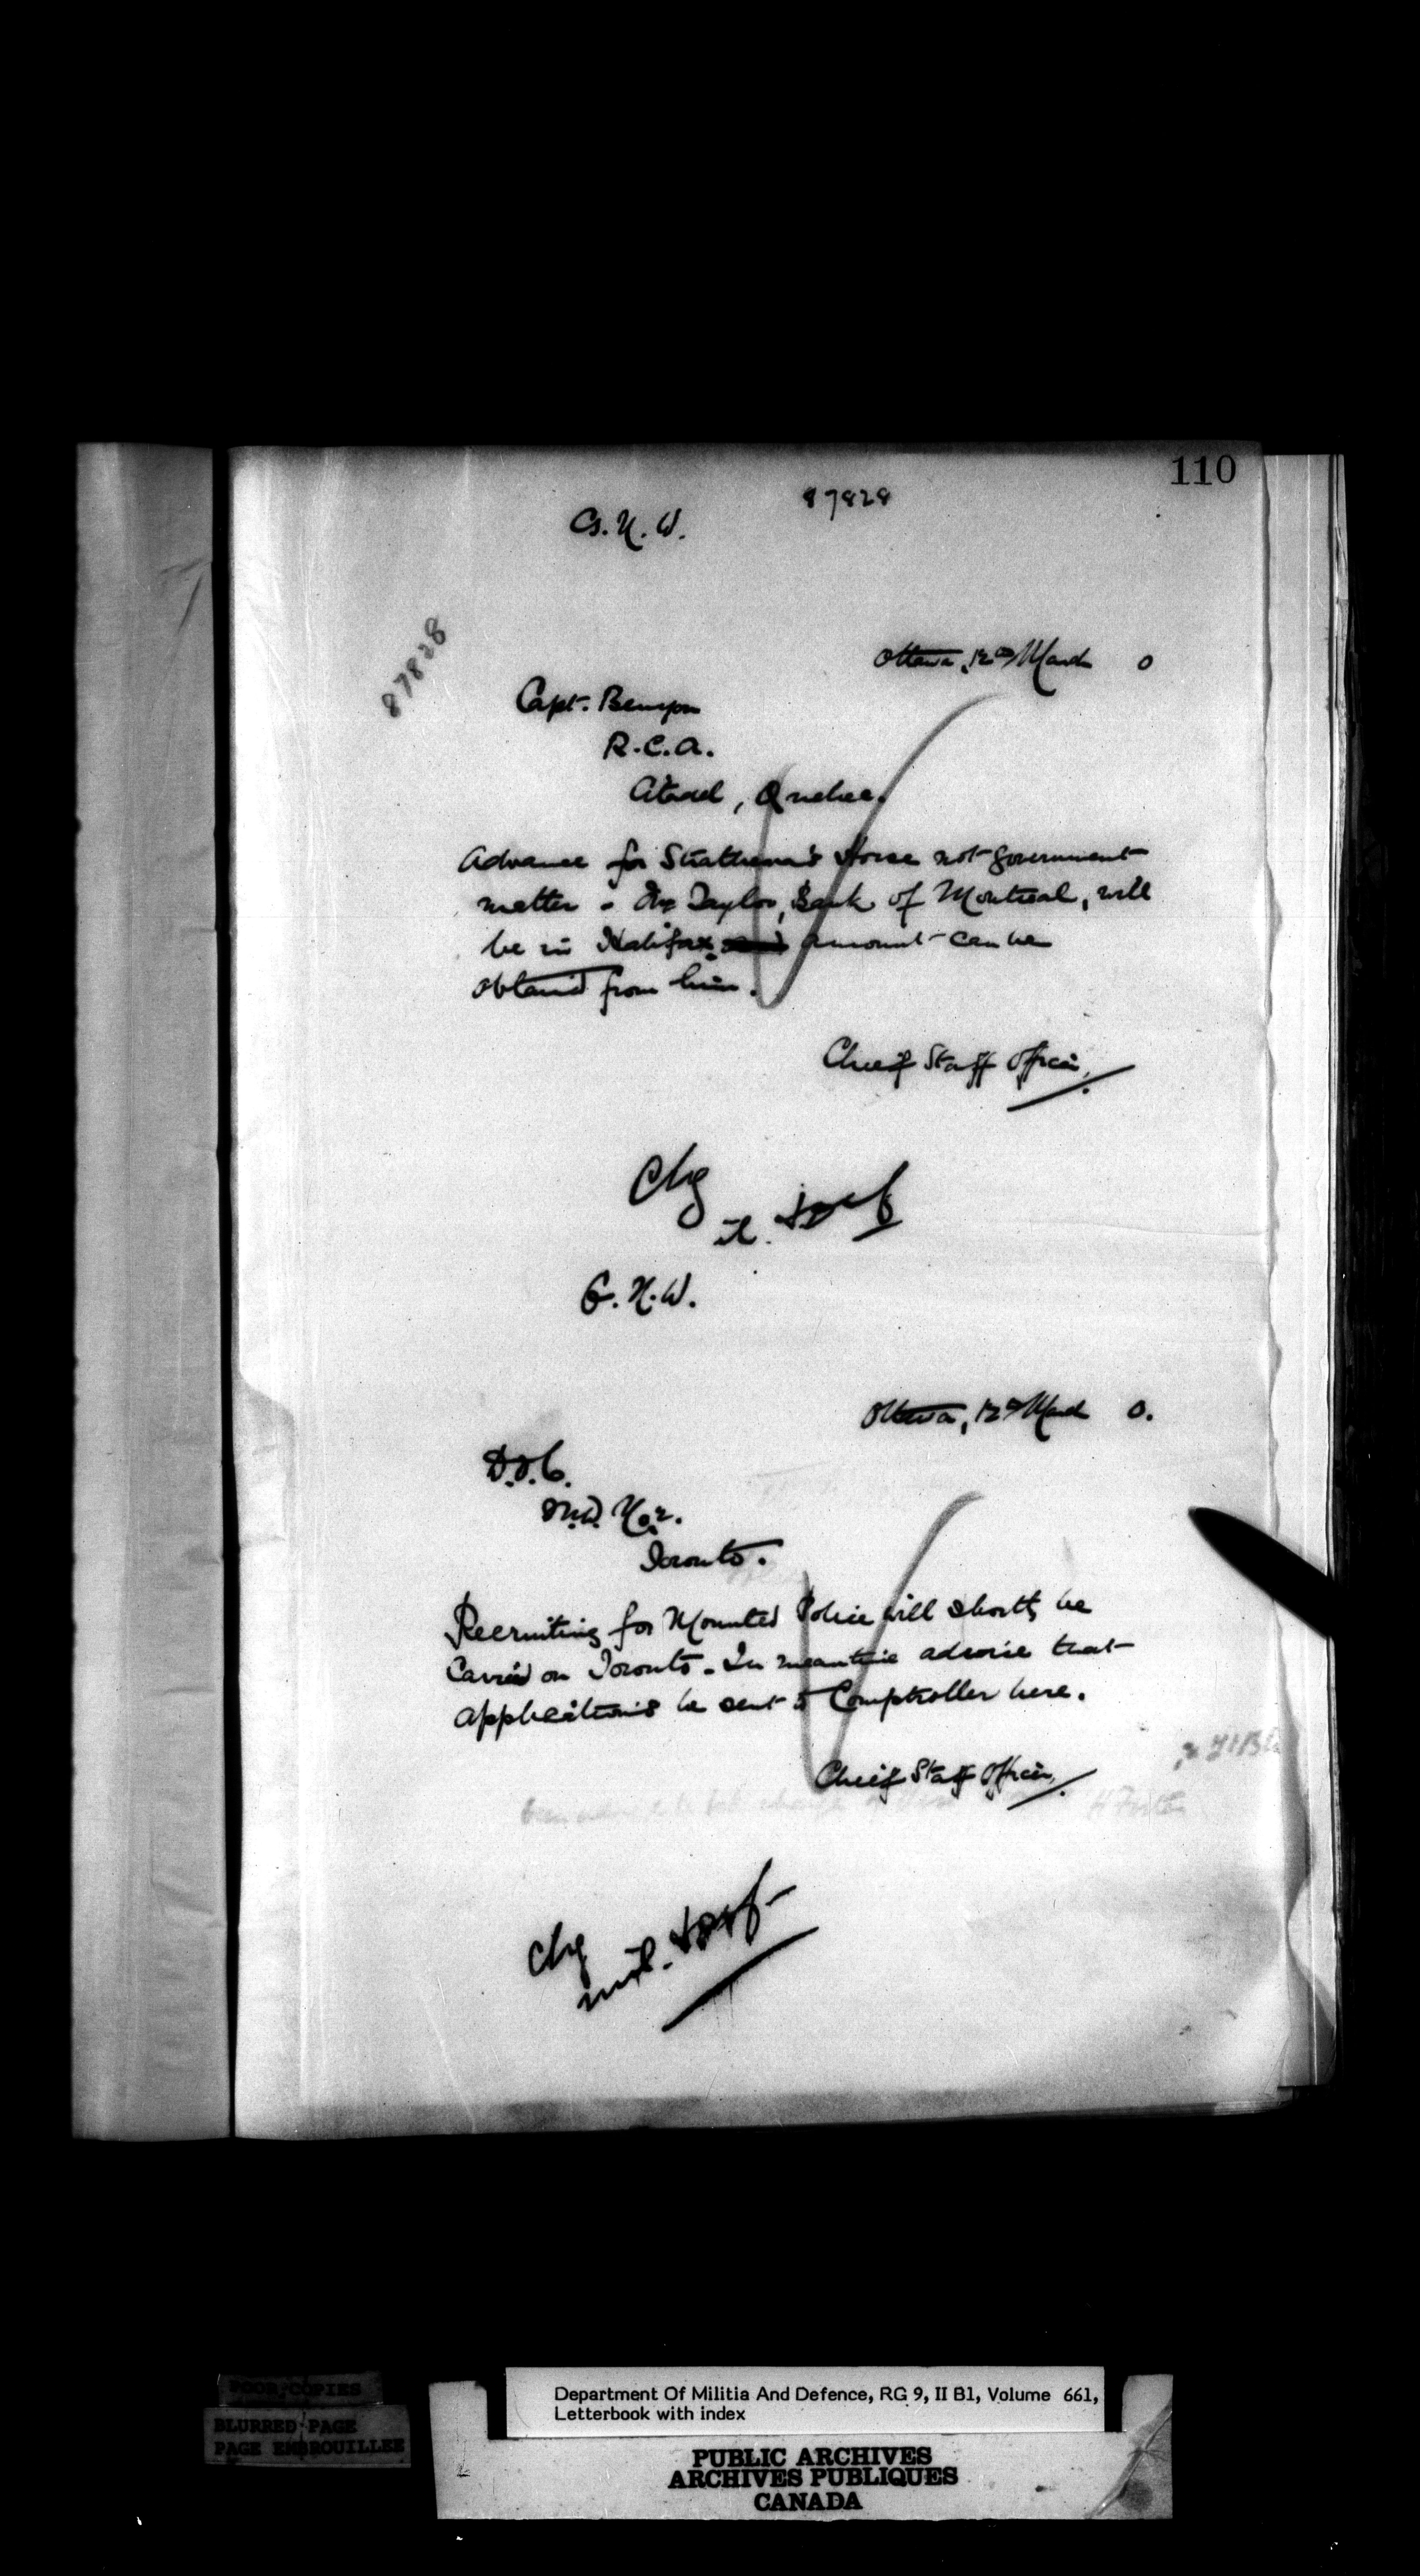 110
87828
G.N.W.
87828
Ottawa, 12th March 0
Capt. Benyon
R.C.A.
Citadel, Quebec.
Advance for Strathcona's Horse not government
matter - Mr Taylor, Bank of Montreal, will
be in Halifax. amount can be
obtained from him.
Chief Staff Officer.
Chg
G.N.W.
Ottawa, 12th March 0.
D.O.C.
M.D. No. 2.
Toronto.
Recruiting for Mounted Police will shortly be
carried on Toronto - In meantime advise that
applications be sent to Comptroller here.
Chief Staff Officer.
Chg
mil.
POOR COPIES
BLURRED PAGE
PAGE EMBROUILLEE
Department Of Militia And Defence, RG 9, II B1, Volume 661,
Letterbook with index
PUBLIC ARCHIVES
ARCHIVES PUBLIQUES
CANADA